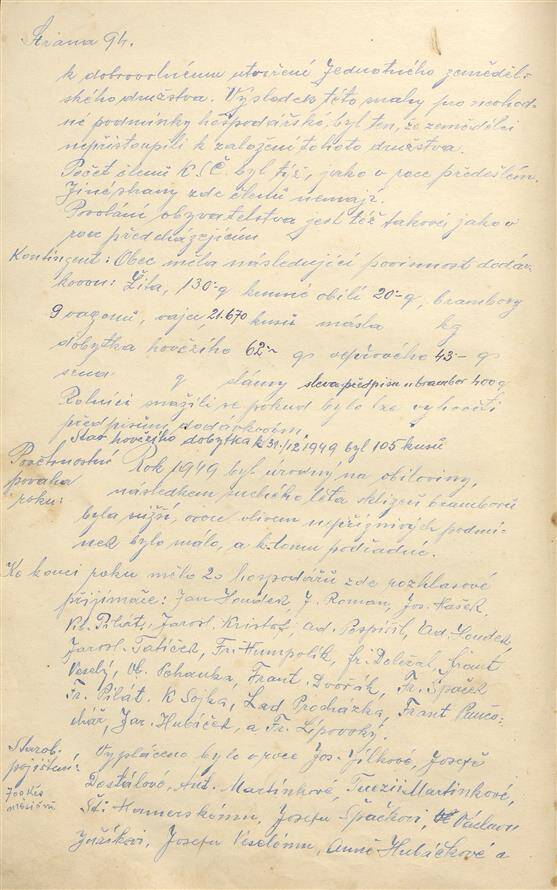 Strana 94.
k dobrovolnému utvoření Jednotného zeměděl-
ského družstva. Výsledek této snahy pro nevhod-
né podmínky hospodářské, byl ten, že zemědělci
nepřistoupili k založení tohoto družstva.
Počet členů KSČ. byl týž, jako v roce předešlém.
Jiné strany zde členů nemají.
Povolání obyvatelstva jest též takové jako v
roce předcházejícím
Kontingent: Obec měla následující povinnost dodáv-
kovou: Žita, 130 q krmné obilí 20 - q, brambory
9 vagonů, vajec, 21.670 kusů másla kg
dobytka hovězího 62 - qs vepřového 43 - qs
sena q slámy sleva předpisu u brambor 400 q
Rolníci snažili se pokud bylo lze vyhověti
předpisům dodávkovým.
Stav hovězího dobytka k 31./12. 1949 byl 105 kusů
Povětrnostní Rok 1949 byl úrodný na obiloviny,
povaha následkem suchého léta sklizeň bramborů
roku: byla nižší, ovoce vlivem nepříznivých podmí-
nek bylo málo, a k tomu podřadné.
Ke konci roku mělo 20 hospodářů zde rozhlasové
přijímače: Jan Loudek, J. Roman, Jos. Hašek,
Vl. Pilát, Jarosl. Kristof, Ad. Pospíšil, Ad. Loudek,
Jarosl. Tatíček, Fr. Humpolík, Fr. Doležal, Frant
Veselý, Vl. Vohanka, Frant. Dvořák, Fr. Špaček
Fr. Pilát. K Sojka, Lad Procházka, Frant Punčo-
chář, Jar. Hubáček, a Fr. Lípovský.
Starob. Vypláceno bylo v roce Jos. Jílkové, Josefě
pojištění: Dostálové, Ant. Martínkové, Terezii Martinkové,
700 Kčs
měsíčně. Hamerskému, Josefu Špačkovi, Václavu
Josefu Veselému, Anně Hubáčkové a